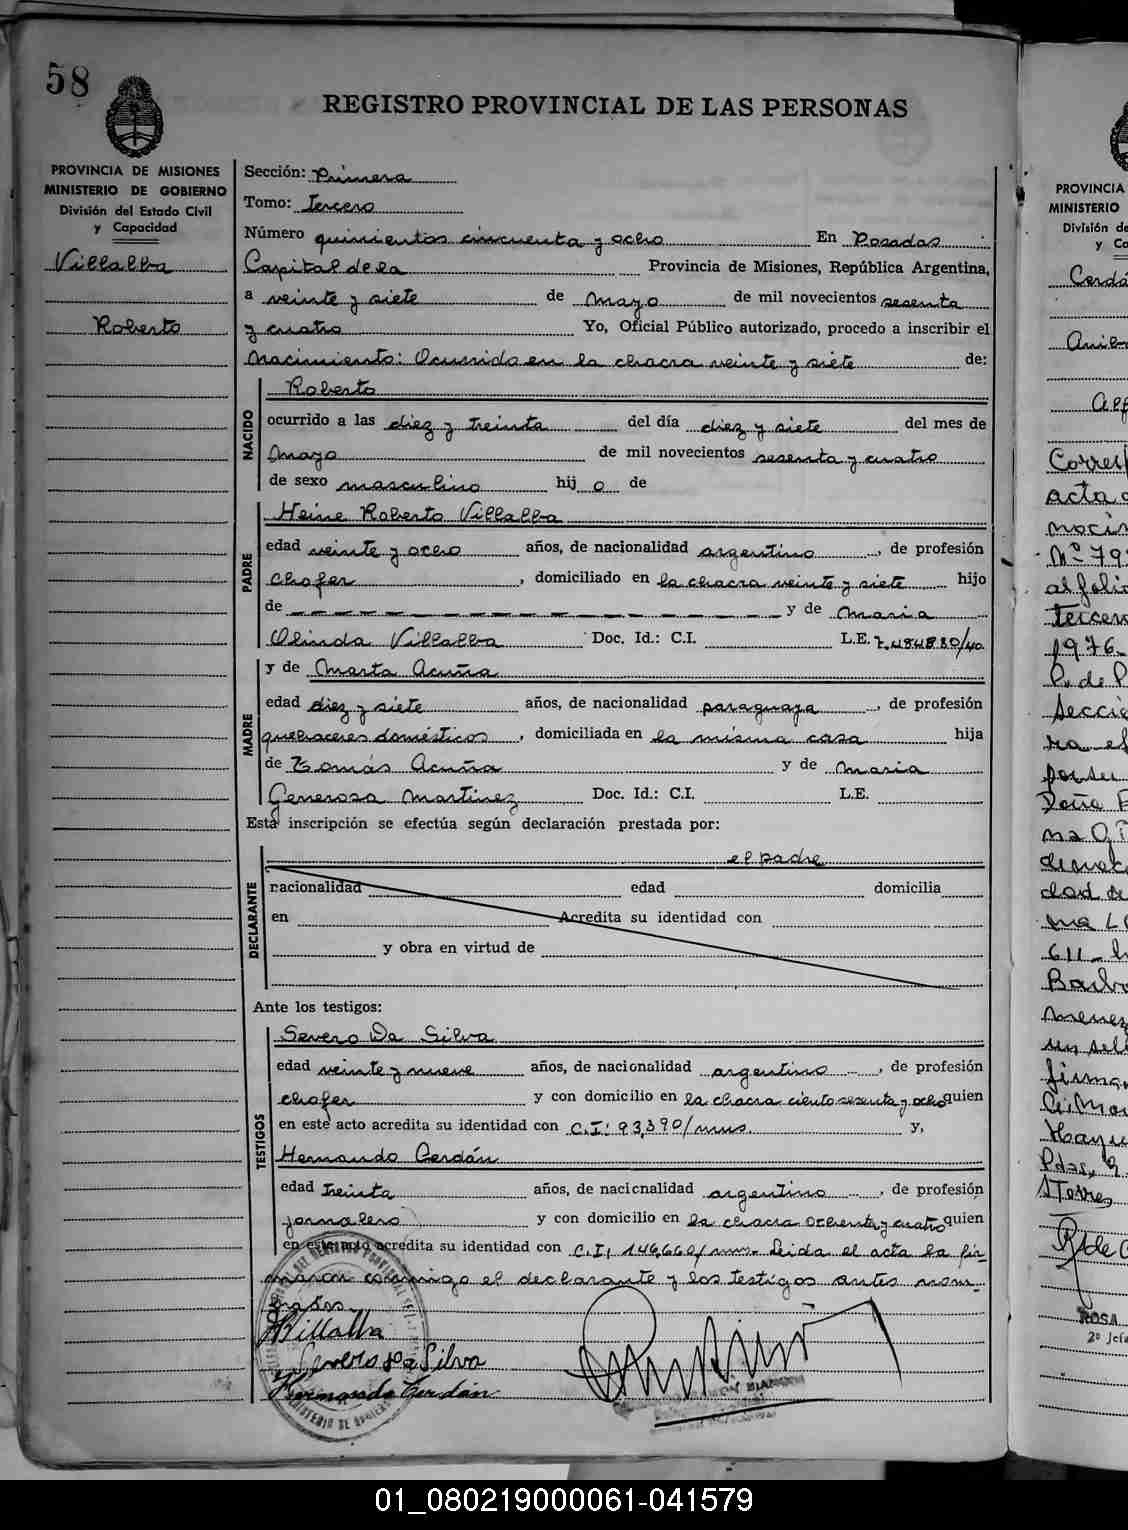 58
REGISTRO PROVINCIAL DE LAS PERSONAS
PROVINCIA DE MISIONES
MINISTERIO DE GOBIERNO
División del Estado Civil
y Capacidad
Villalba
Roberto
Sección: Primera
Tomo: Tercero
Número quinientos cincuenta y ocho En Posadas
Capital de la Provincia de Misiones, República Argentina,
a veinte y siete de Mayo de mil novecientos sesenta
y cuatro Yo, Oficial Público autorizado, procedo a inscribir el
Nacimiento: Ocurrido en la chacra veinte y siete de:
NACIDO
Roberto
ocurrido a las diez y treinta del día diez y siete del mes de
Mayo de mil novecientos sesenta y cuatro
de sexo masculino hij o de
PADRE
Heine Roberto Villalba
edad veinte y ocho años, de nacionalidad argentino, de profesión
chofer, domiciliado en la chacra veinte y siete hijo
de — — — — — — — — — — — — y de Maria
Olinda Villalba Doc. Id.: C.I. L.E. 7.484830/40.
MADRE
y de Marta Acuña
edad diez y siete años, de nacionalidad paraguaya, de profesión
quehaceres domésticos, domiciliada en la misma casa hija
de Tomás Acuña y de Maria
Generosa Martinez Doc. Id.: C.I. L.E.
Esta inscripción se efectúa según declaración prestada por:
DECLARANTE
el padre
nacionalidad edad domicilia
en Acredita su identidad con
y obra en virtud de
Ante los testigos:
TESTIGOS
Severo Da Silva
edad veinte y nueve años, de nacionalidad argentino, de profesión
chofer y con domicilio en la chacra ciento sesenta y ocho quien
en este acto acredita su identidad con C.I: 93,390/mns. y,
Hernando Cerdán
edad treinta años, de nacicnalidad argentino, de profesión
jornalero y con domicilio en la chacra ochenta y cuatro quien
en este acto acredita su identidad con C.I, 146,660/mns. Leida el acta la fir-
maron conmigo el declarante y los testigos antes nom-
brados.
HVillalba
Severo Da Silva
Hernando Cerdán
PROVINCIA
MINISTERIO
División de
y Ca
Cerdá
acta
al folio
1976-
P. de P
611-
ROSA
2º Jefe
01_080219000061-041579